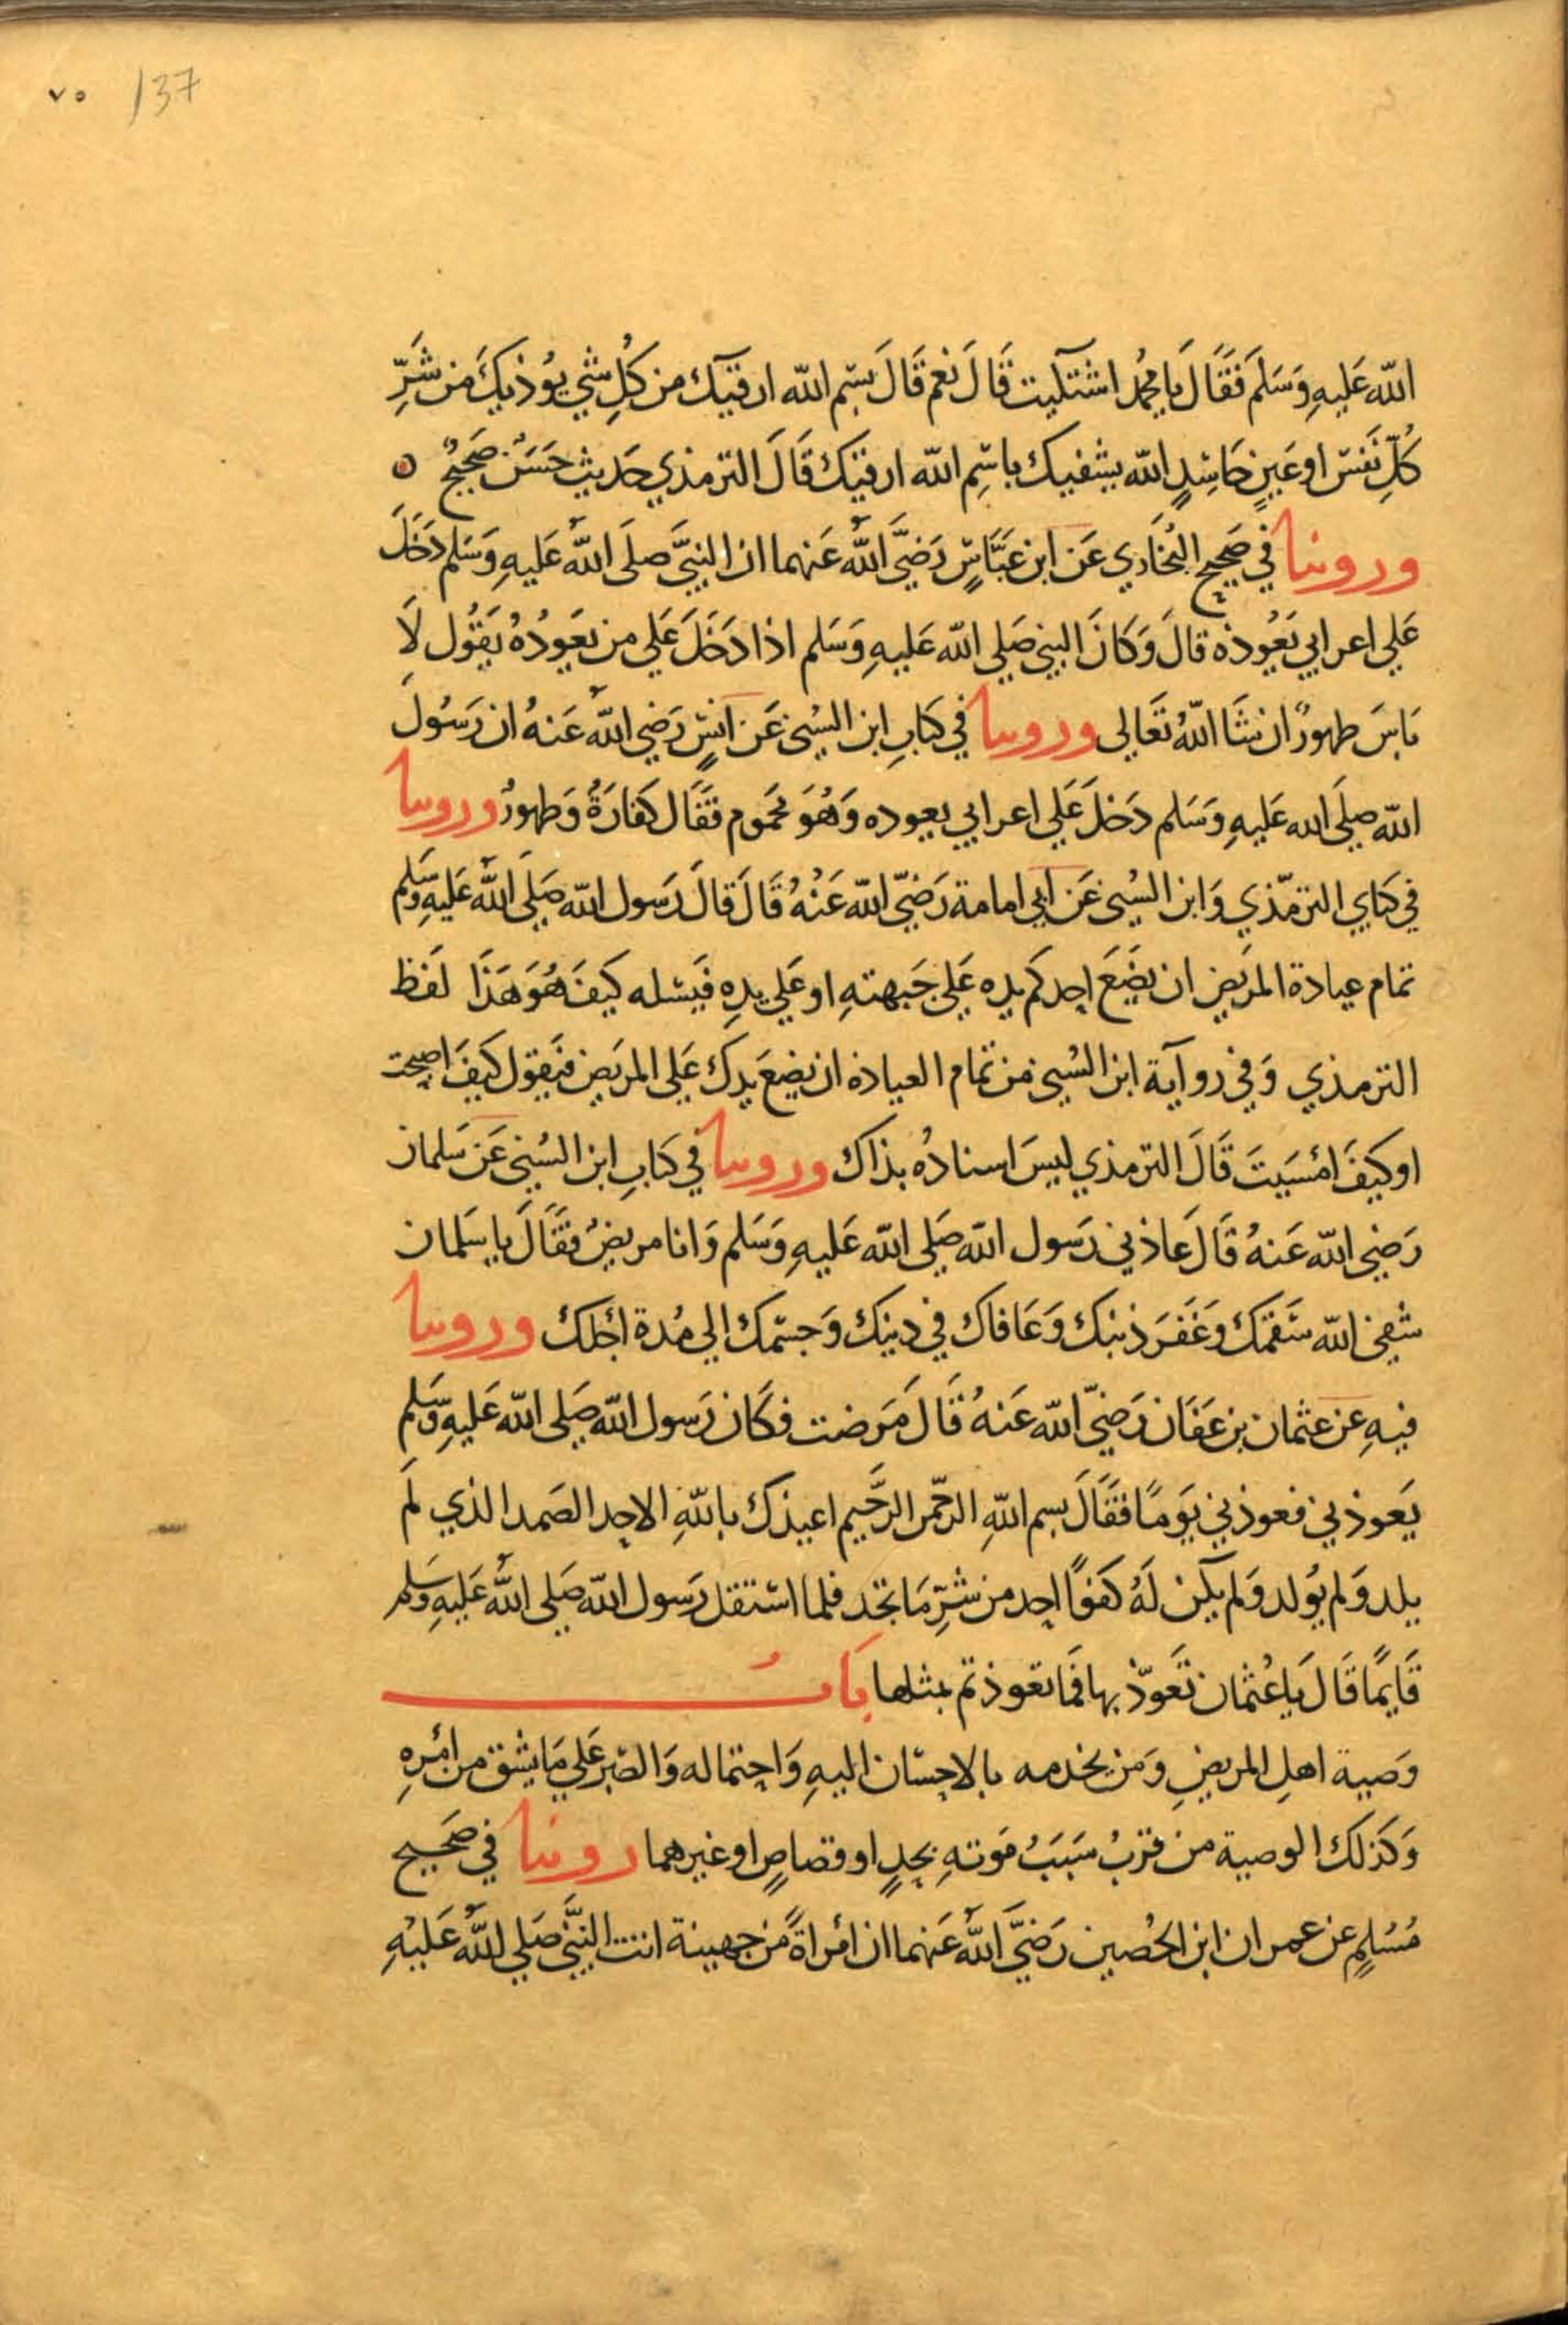 ٧٥ 137
الله عَليهِ وَسَلمَ فَقَالَ يَا محمُد اشتكيت قَالَ نعَم قَالَ بسْمِ الله ارقيَك من كُلِ شيٍ يوُذيكَ مِن شَرِّ
كُلِّ نَفسٍ او عَينٍ حَاسِدٍ الله يشفيك باسْمِ الله ارقيَك قَالَ الترمذي حَديث حَسَن صَحيحٌ ۞
وروينا في صَحيحِ البُخَاري عَن ابن عَبَّاسٍ رَضيَ اللهُ عَنهما ان النبيَّ صلَى اللهُ عَليهِ وَسَلم دَخَلَ
عَلي اعرابي يَعُوده قالَ وَكَانَ النبي صَلي الله عَليهِ وَسَلم اذا دَخَلَ عَلي من يعَودُهُ يَقُول لَا
بَاسَ طهورٌ ان شَا اللهُ تَعَالى وروينا في كتابِ ابن السُني عَن انسٍ رَضي اللهُ عَنهُ ان رَسُولَ
الله صلَى الله عَليهِ وَسَلم دَخلَ عَلي اعرابي يعوده وَهُوَ محَموم فقَال كفارَةٌ وَطهورٌ وروينا
في كتابي الترمّذي وَابن السُني عَن ابي امامة رَضيَ الله عَنْهُ قَالَ قالَ رَسول الله صَلي اللهُ عَليهِ وَسَلم
تمام عيادة المرَيض ان يَضَعَ احدكم يده عَلي جَبهتهِ او عَلي يدِهِ فَيسئله كيفَ هُوَ هَذَا لفَظ
الترمذي وَفي روآية ابن السُني من تمام العيادة ان يضعَ يدك عَلي المريَض فيَقول كَيفَ اصبحت
او كيفَ امْسَيتَ قَالَ الترمذي ليسَ اسنادُه بذاك وروينا في كتابِ ابن السُني عَن سَلمان
رَضي الله عَنهُ قَالَ عَادني رَسول الله صَلي الله عَليهِ وَسَلم وَانا مريضٌ فقَالَ يا سَلمان
شفي الله سَقمَك وغَفَرَ ذنبك وَعَافاك في دينك وَجسَمك الي مُدة اجَلك وروينا
فيهِ عَن عثمان بن عَفَان رَضيَ الله عَنهُ قَالَ مَرضت فكَان رَسول الله صَلي الله عَليهِ وَسَلم
يَعوذني فعوذني يَومًا فقَالَ بسم اللهِ الرحّمن الرَّحيم اعيذك باللهِ الاحد الصَمد الذي لَم
يلد وَلم يُولد وَلم يكن لَهُ كَفوًا احد من شَرِّ مَا تجَد فلما اسْتقلَ رَسول الله صَلي اللهُ عَليهِ وَسَلم
قَايمًا قَالَ يَا عُثمان تعَوّذ بها فمَا تعوذتم بمثلها بَابُ
وَصية اهلِ المريضِ وَمن يخدمه بالاحسَان اليهِ وَاحتماله وَالصَبر عَلي مَا يشق من امْرِهِ
وَكذلك الوصية من قربُ سَبَبُ مَوتهِ بحدٍ او قصاصٍ او غيرهما روينا في صَحيح
مُسْلمٍ عن عمران ابن الحُصين رَضيَ اللهُ عَنهما ان امْراةً مِن جهينة اتت النبَّي صَلي اللهُ عَليْهِ